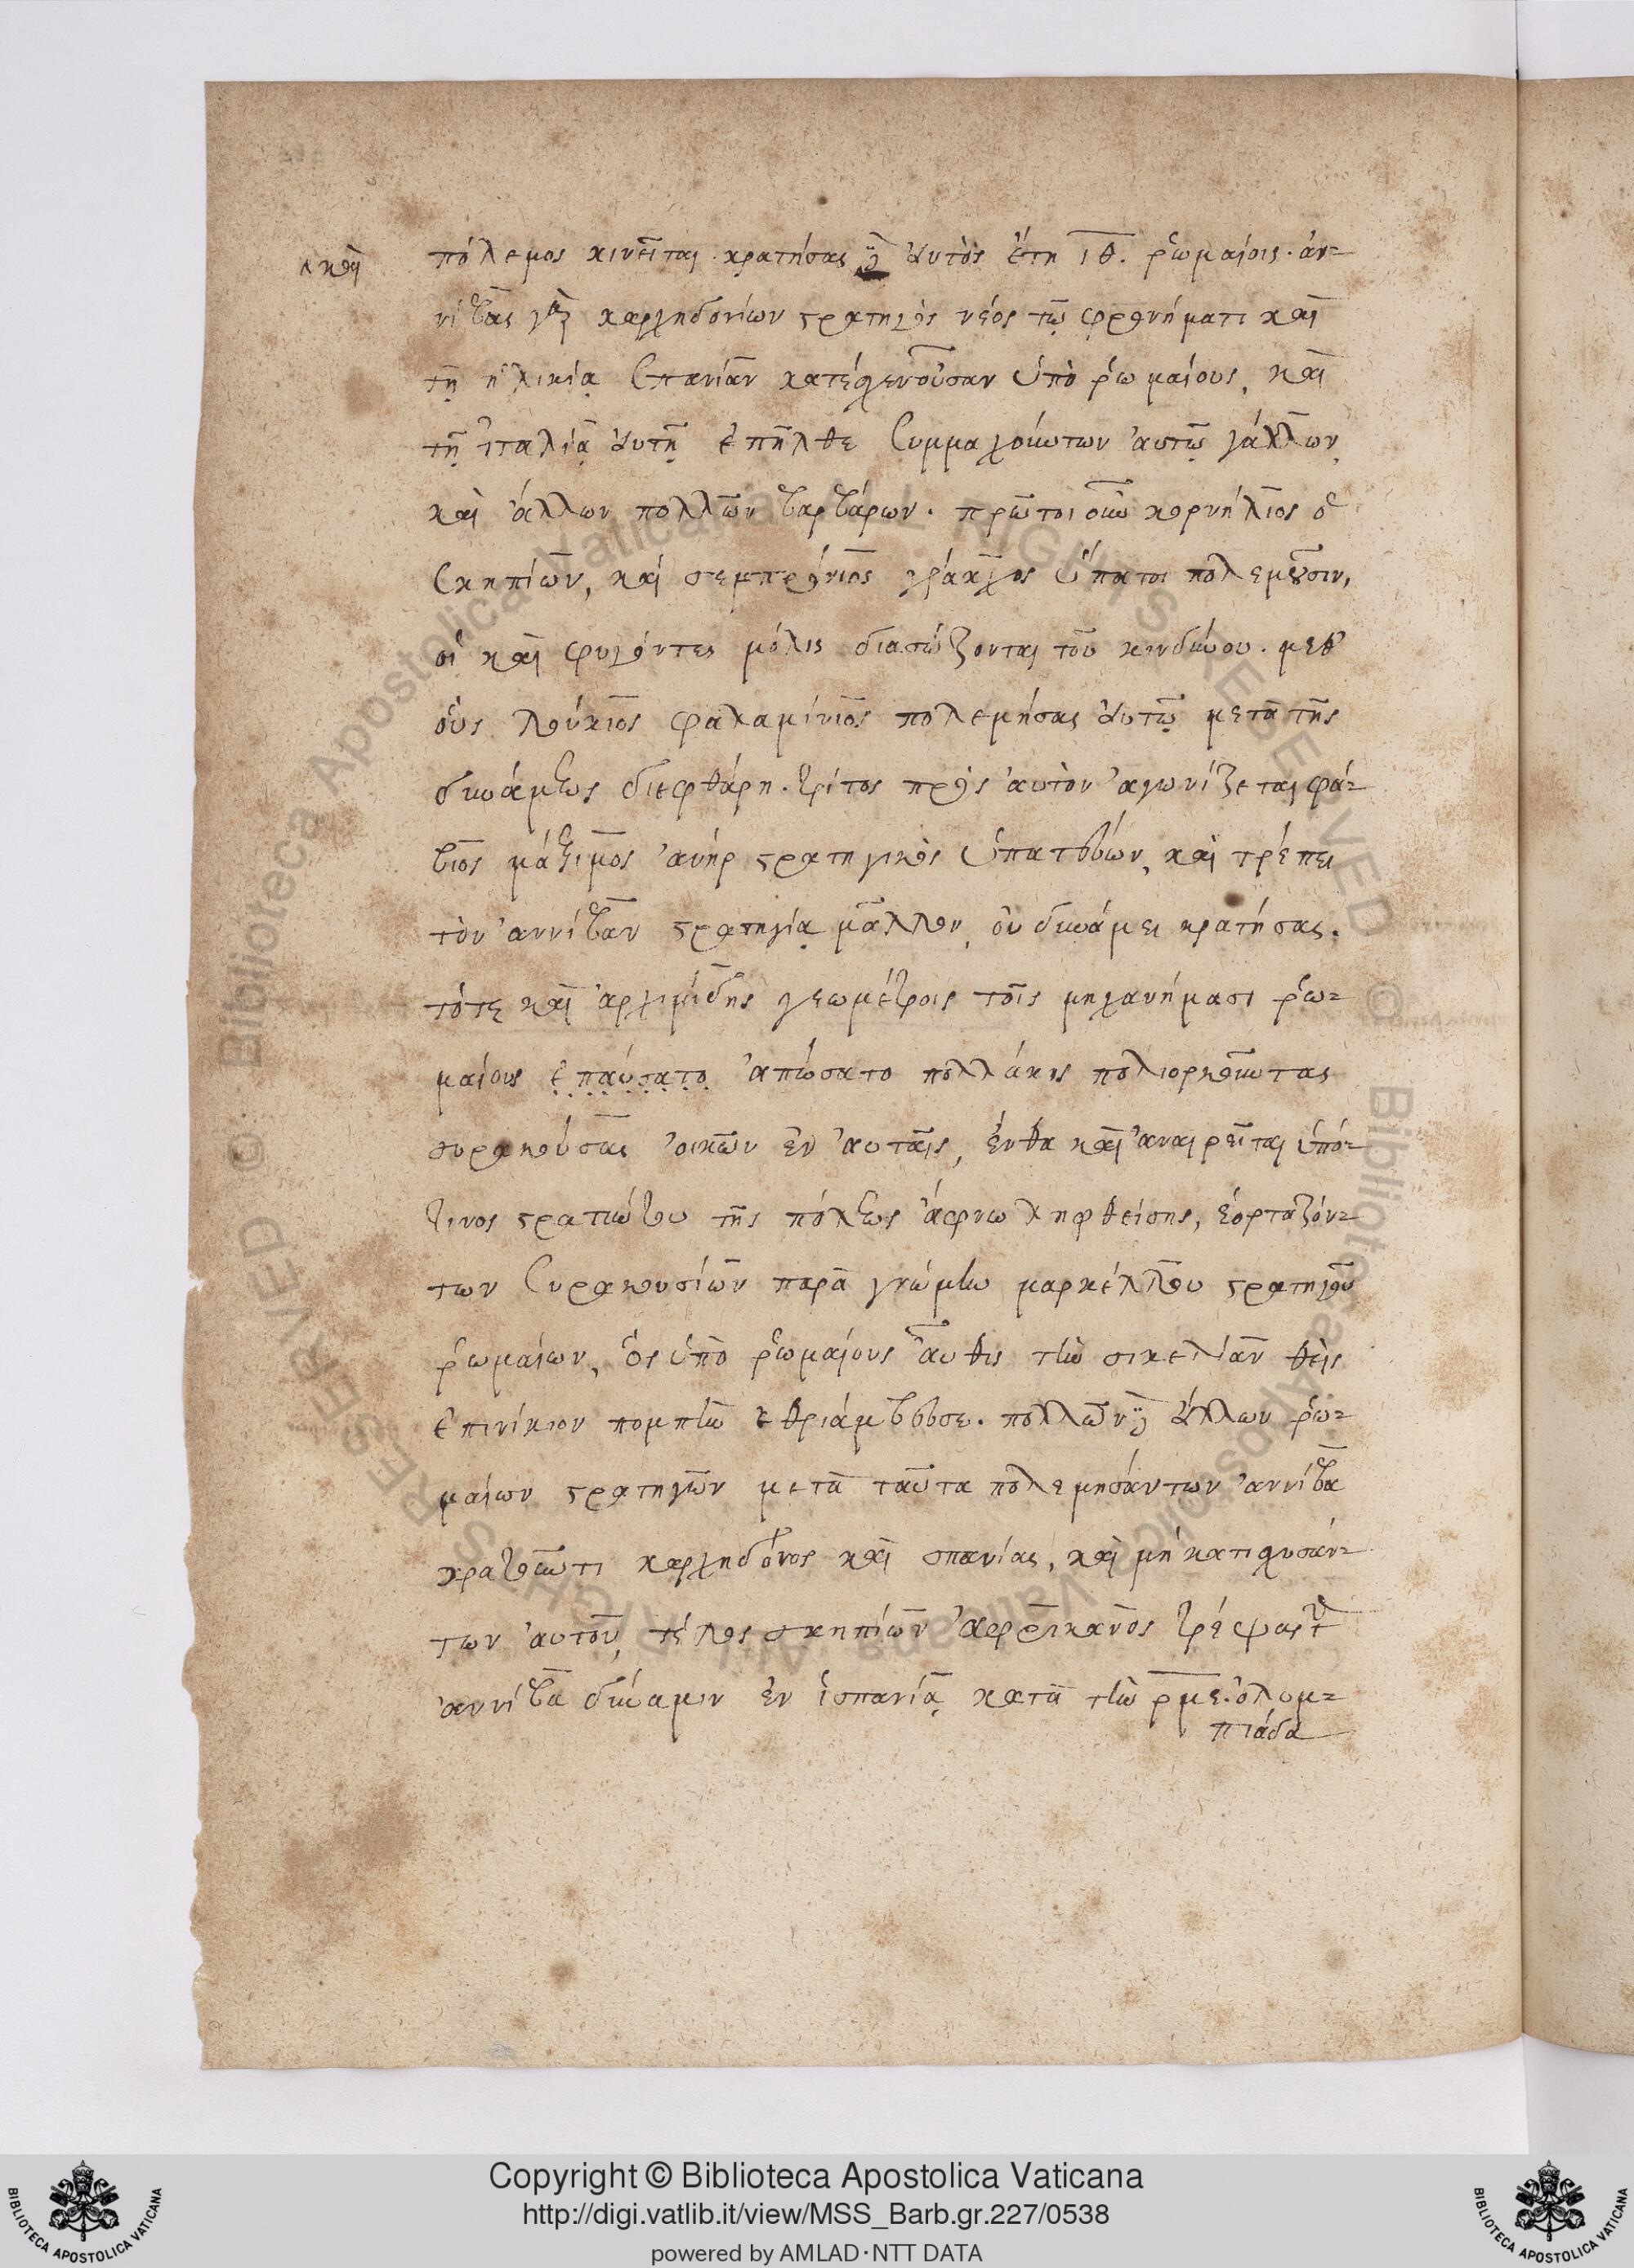 ⸌καὶ
πόλεμος κινεῖται κρατήσας καὶ αὐτὸς ἔτη ιθ. ῥωμαίοις. ἀν-
νίβας γὰρ καρχηδονίων στρατηγὸς νέος τῷ φρονήματι καὶ
τῇ ἡλικίᾳ σπανίαν κατέχει οὖσαν ὑπὸ ῥωμαίους, καὶ
τῇ ἰταλίᾳ αὐτῇ ἐπῆλθε συμμαχούντων αὐτῷ γάλλων,
καὶ ἄλλων πολλῶν βαρβάρων. πρῶτοι οὖν κορνήλιος ὁ
σκηπίων, καὶ σεμπρόνιος γράκχος ὕπατοι πολεμοῦσιν,
οἳ καὶ φυγόντες μόλις διασώζονται τοῦ κινδύνου. μεθ'
οὓς λούκιος φαλαμίνιος πολεμήσας αὐτῷ μετὰ τῆς
δυνάμεως διεφθάρη. τρίτος πρὸς αὐτὸν ἀγωνίζεται φά-
βιος μάξιμος ἀνὴρ στρατηγικὸς ὑπατεύων, καὶ τρέπει
τὸν ἀννίβαν στρατηγίᾳ μᾶλλον, οὐ δυνάμει κρατήσας.
τότε καὶ ἀρχιμίδης γεωμέτροις τοῖς μηχανήμασι ῥω-
μαίους ἐπαύσατο ἀπώσατο πολλάκις πολιορκοῦντας
συρακούσας οἰκῶν ἐν αὐταῖς, ἔνθα καὶ ἀναιρεῖται ὑπό
τινος στρατιώτου τῆς πόλεως ἄφνω ληφθείσης, ἑορταζόν-
των συρακουσίων παρὰ γνώμην μαρκέλλου στρατηγοῦ
ῥωμαίων, ὃς ὑπὸ ῥωμαίους αὖθις τὴν σικελίαν θεὶς
ἐπινίκιον πομπὴν ἐθριάμβευσε. πολλῶν καὶ ἄλλων ῥω-
μαίων στρατηγῶν μετὰ ταῦτα πολεμησάντων ἀννίβα
κρατοῦντι καρχηδόνος καὶ σπανίας, καὶ μὴ κατισχυσάν-
των αὐτοῦ, τέλος σκηπίων ἀφρικανὸς τρέψας τὴν
ἀννίβα δύναμιν ἐν ἱσπανίᾳ κατὰ τὴν ρμε. ὀλυμ-
πιάδα
Copyright © Biblioteca Apostolica Vaticana
http://digi.vatlib.it/view/MSS_Barb.gr.227/0538
powered by AMLAD·NTT DATA